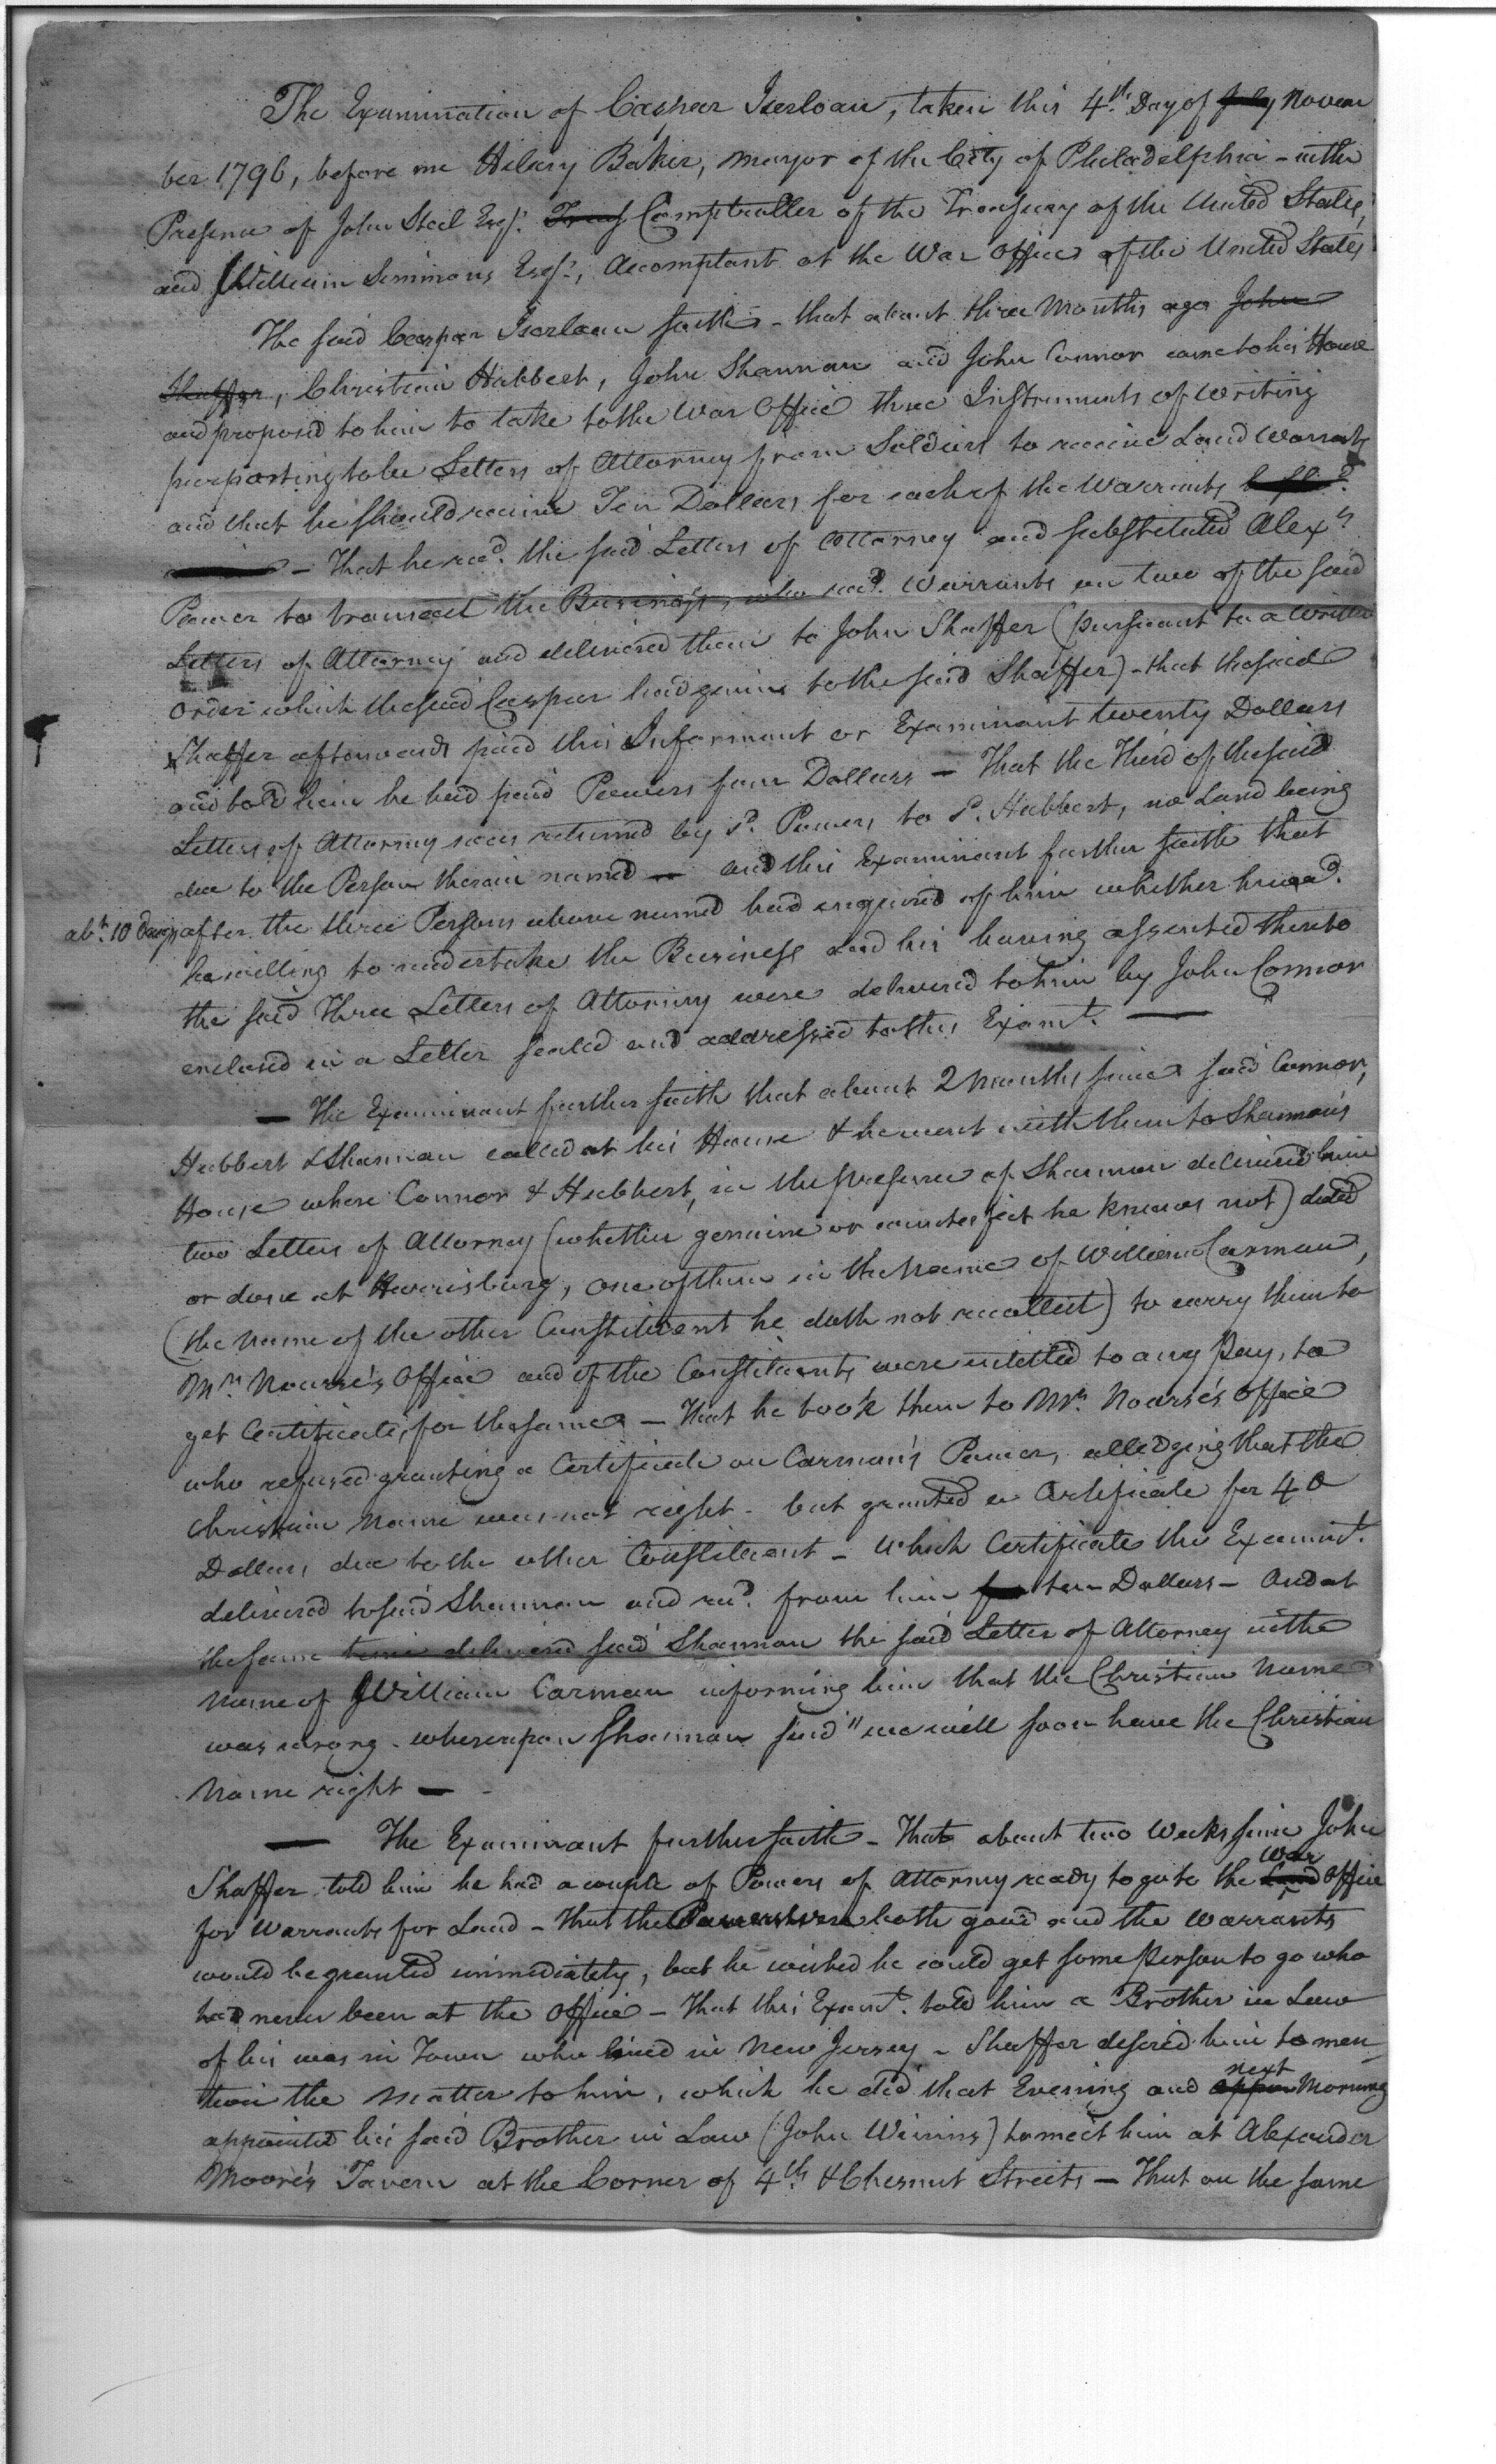 The Examination of Caspar Iserloan, taken this 4th. Day of July Novem
ber 1796, before me Hilary Baker, Mayor of the City of Philadelphia - in the
Presence of John Steel Esqr. Treas Comptroller of the Treasury of the United States,
and William Simmons Esqr., Accomptant at the War Office of the United States
The said Caspar Iserloan saith - that about three Months ago John
Shaffer, Christian Hubbert, John Shannon and John Connor came to his House
and proposed to him to take to the War Office three Instruments of Writing
purporting to be Letters of Attorney from Soldiers to receive Land Warrants
and that he should receive Ten Dollars for each of the Warrants
- That he recd. the said Letters of Attorney and substituted Alexr.
Power to transact the Business, who recd. Warrants on two of the said
Letters of Attorney and delivered them to John Shaffer (pursuant to a written
order which the said Caspar had given to the said Shaffer) - that the said
Shaffer afterwards paid this Informant or Examinant twenty Dollars
and told him he had paid Powers four Dollars - That the Third of the said
Letters of Attorney was returned by sd. Powers to sd. Hubbert, no Land being
due to the Person therein named - and this Examinant further saith that
abt. 10 Days after the three Persons above named had enquired of him whether he woud.
be willing to undertake the Business and his having assented thereto
the said Three Letters of Attorney were delivered to him by John Connor
enclosed in a Letter sealed and addressed to this Examt. -
- The Examinant further saith that about 2 Months since said Connor,
Hubbert & Shannon called at his House & he went with them to Shannon's
House where Connor & Hubbert, in the presence of Shannon delivered him
two Letters of Attorney (whether genuine or counterfeit he knows not) dated
or done at Harrisburg, one of them in the Name of William Carman,
(the name of the other Constituent he doth not recollect) to carry them to
Mr. Nourse's Office and if the Constituents were entitled to any Pay, to
get Certificates for the same - That he took them to Mr. Nourse's Office
who refused granting a Certificate on Carman's Power, alledging that the
Christian Name was not right - but granted a Certificate for 40
Dollars due to the other Constituent - which Certificate the Examint.
delivered to said Shannon and recd. from him ten Dollars - And at
the same time delivered said Shannon the said Letter of Attorney in the
name of William Carman informing him that the Christian Name
was wrong - whereupon Shannon said "we will soon have the Christian
Name right -
- The Examinant further saith - That about two Weeks since John
Shaffer told him he had a couple of Powers of Attorney ready to go to the Land War Office
for Warrants for Land - that the Powers were both good and the Warrants
would be granted immediately, but he wished he could get some Person to go who
had never been at the Office - That this Examt. told him a Brother in Law
of his was in Town who lived in New Jersey - Shaffer desired him to men
tion the Matter to him, which he did that Evening and appoin next Morning
appointed his said Brother in Law (John Winins) to meet him at Alexander
Moore's Tavern at the Corner of 4th. & Chesnut Streets - That on the same